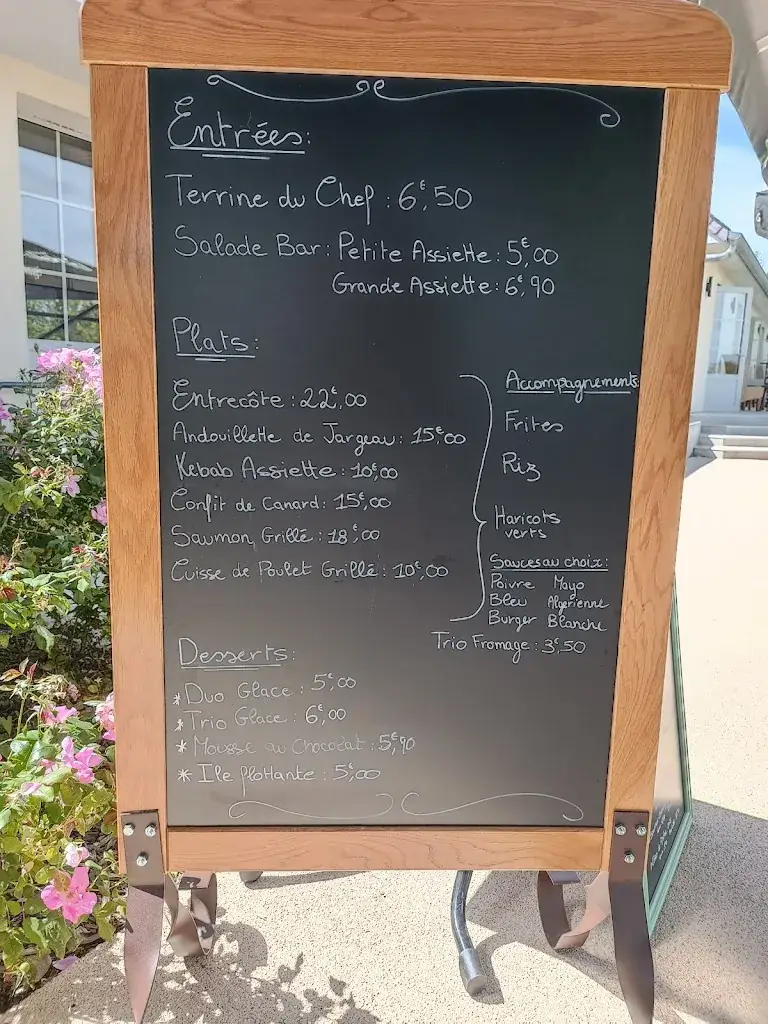 Entrées:
Terrine du Chef : 6€,50
Salade Bar : Petite Assiette : 5€,00
Grande Assiette : 6€,90
Plats:
Entrecôte : 22€,00
Andouillette de Jargeau : 15€,00
Kebab Assiette : 10€,00
Confit de Canard : 15€,00
Saumon Grillé : 18€,00
Cuisse de Poulet Grillé : 10€,00
Accompagnements
Frites
Riz
Haricots
verts
Sauces au choix :
Poivre Mayo
Bleu Algerienne
Burger Blanche
Trio Fromage : 3€,50
Desserts:
* Duo Glace : 5€,00
* Trio Glace : 6€,00
* Mousse au Chocolat : 5€,90
* Ile flottante : 5€,00